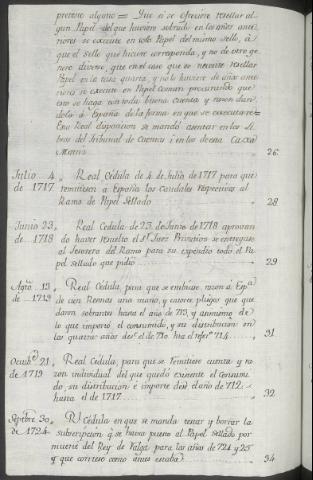 pretexto alguno = Que si se ofreciere resellar al-
gun Papel del que huviere sobrado en los años ante-
riores se execute en solo Papel del mismo sello, á
que el sello que hiciere corresponda, y no de otro ge-
nero diverso, que en el caso que se necesite resellar
Papel en la casa quarta, y no le huviere de años ante-
riores se execute en Papel comun procurando que
esto se haga con toda buena cuenta y razon dan-
dola á España de la forma en que se executare =
Esta Real disposicion se mandó asentar en los Li-
bros del Tribunal de Cuentas i en los de esta Caxa
Matriz 26
Julio 4 Real Cédula de 4 de Julio de 1717 para que
de 1717 remitiesen a España los Caudales respectivos al
Ramo de Papel Sellado 28
Junio 23 Real Cedula de 23 de Junio de 1718 aprovan
de 1718 do haver resuelto el Sr Juez Privativo se entregase
al Tesorero del Ramo para su expendio todo el Pa
pel sellado que pidio 29
Agto 13 Real Cédula, para que se embiase razon á Espa
de 1719 de cien Resmas una mano, y catorce pliegos que que
daron sobrantes hasta el año de 713, y asimismo de
lo que importó el consumido, y su distribucion en
los quatro años desde el de 710 hta el referdo 714 31
Octubre 21 Real Cédula, para que se remitiese cuenta y ra
de 1719 zon individual del que quedó existente el Consumi
do, su distribucion é importe desde el año de 712
hasta el de 1717 32
Septbre 30 Rl Cédula en que se manda tenar y borrar la
de 1724 subscripcion q se havia puesto al Papel Sellado por
muerte del Rey de Valga para los años de 724 y 25
y que corriese como antes estaba 34